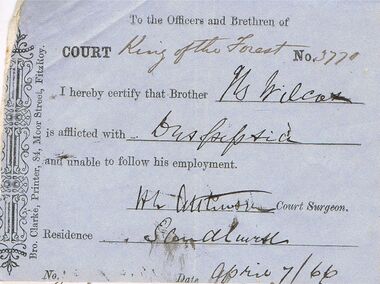 To the Officers and Brethren of
COURT King of the Forest No. 3770
I hereby certify that Brother Wilcox
is afflicted with Dyspepsia
and unable to follow his employment.
Court Surgeon.
Residence Sandhurst
No. Date April 7/66
Bro. Clarke, Printer, 84, Moor Street, FitzRoy.